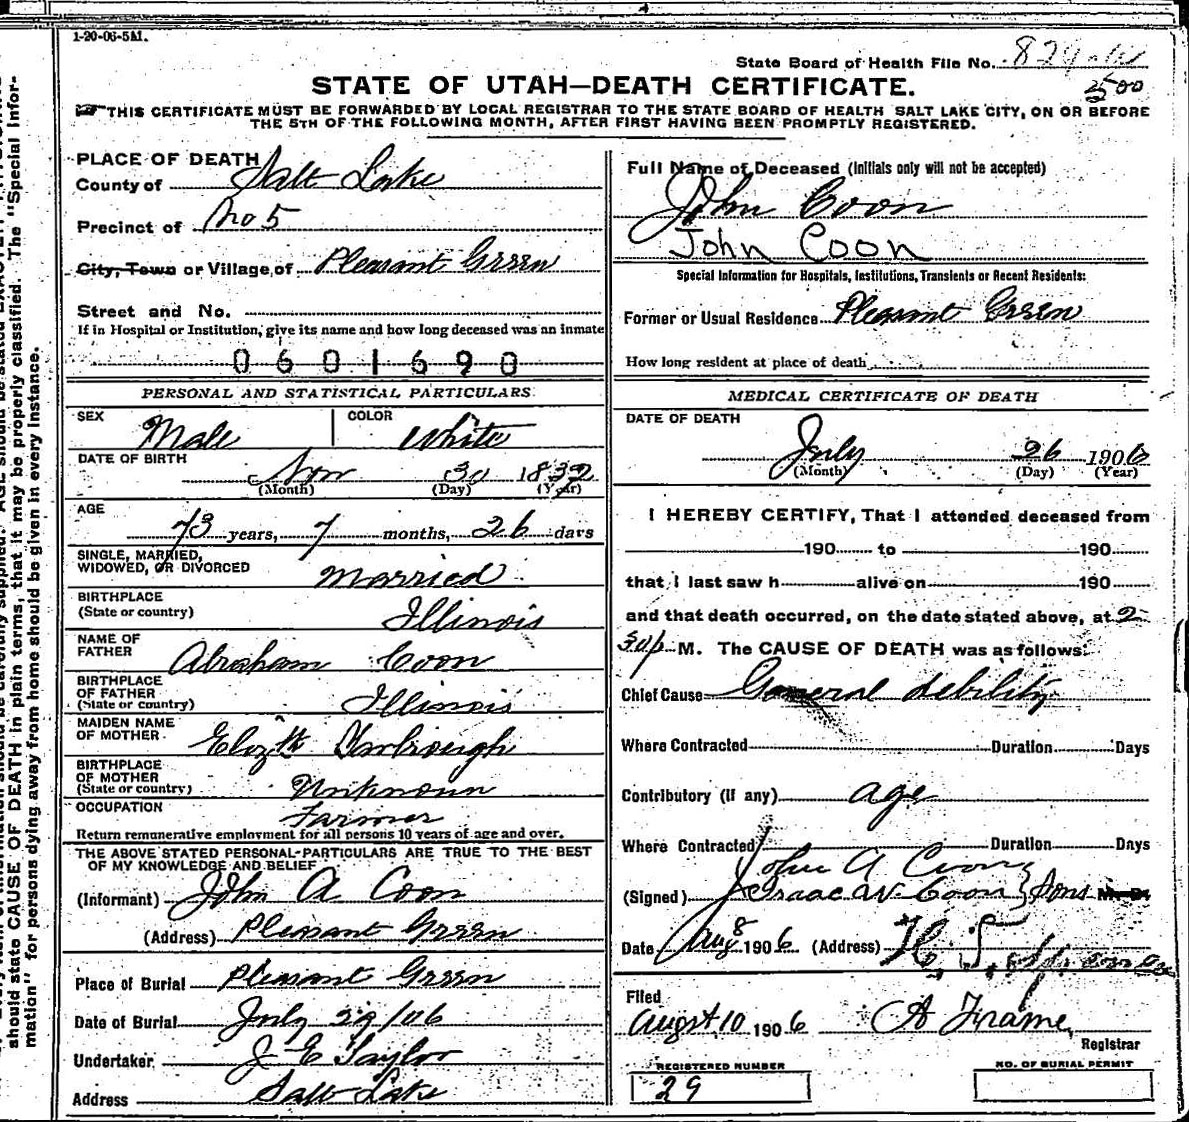 1-20-06-5M.
State Board of Health File No. 829
STATE OF UTAH—DEATH CERTIFICATE.
2500
THIS CERTIFICATE MUST BE FORWARDED BY LOCAL REGISTRAR TO THE STATE BOARD OF HEALTH SALT LAKE CITY, ON OR BEFORE
THE 5TH OF THE FOLLOWING MONTH, AFTER FIRST HAVING BEEN PROMPTLY REGISTERED.
PLACE OF DEATH
County of Salt Lake
Precinct of No 5
City, Town or Village of Pleasant Green
Street and No.
If in Hospital or Institution, give its name and how long deceased was an inmate
0601690
PERSONAL AND STATISTICAL PARTICULARS
SEX Male COLOR White
DATE OF BIRTH Nov 30 1832
(Month) (Day) (Year)
AGE
73 years, 7 months, 26 days
SINGLE, MARRIED,
WIDOWED, OR DIVORCED Married
BIRTHPLACE
(State or country) Illinois
NAME OF
FATHER Abraham Coon
BIRTHPLACE
OF FATHER
(State or country) Illinois
MAIDEN NAME
OF MOTHER Elizth Yarbrough
BIRTHPLACE
OF MOTHER
(State or country) Unknown
OCCUPATION Farmer
Return remunerative employment for all persons 10 years of age and over.
THE ABOVE STATED PERSONAL PARTICULARS ARE TRUE TO THE BEST
OF MY KNOWLEDGE AND BELIEF
(Informant) John A Coon
(Address) Pleasant Green
Place of Burial Pleasant Green
Date of Burial July 29/06
Undertaker J E Taylor
Address Salt Lake
Full Name of Deceased (Initials only will not be accepted)
John Coon
John Coon
Special Information for Hospitals, Institutions, Transients or Recent Residents:
Former or Usual Residence Pleasant Green
How long resident at place of death
MEDICAL CERTIFICATE OF DEATH
DATE OF DEATH
July 26 1906
(Month) (Day) (Year)
I HEREBY CERTIFY, That I attended deceased from
190 to 190
that I last saw h alive on 190
and that death occurred, on the date stated above, at 2
30 p M. The CAUSE OF DEATH was as follows:
Chief Cause General debility
Where Contracted Duration Days
Contributory (if any) age
Where Contracted Duration Days
John A Coon
(Signed) Isaac W Coon } Sons M. D.
Date Aug 8 1906 (Address) H. T.
Filed
August 10 1906 A Frame
Registrar
REGISTERED NUMBER NO. OF BURIAL PERMIT
29
should state CAUSE OF DEATH in plain terms, that it may be properly classified. The "Special Infor-
mation" for persons dying away from home should be given in every instance.